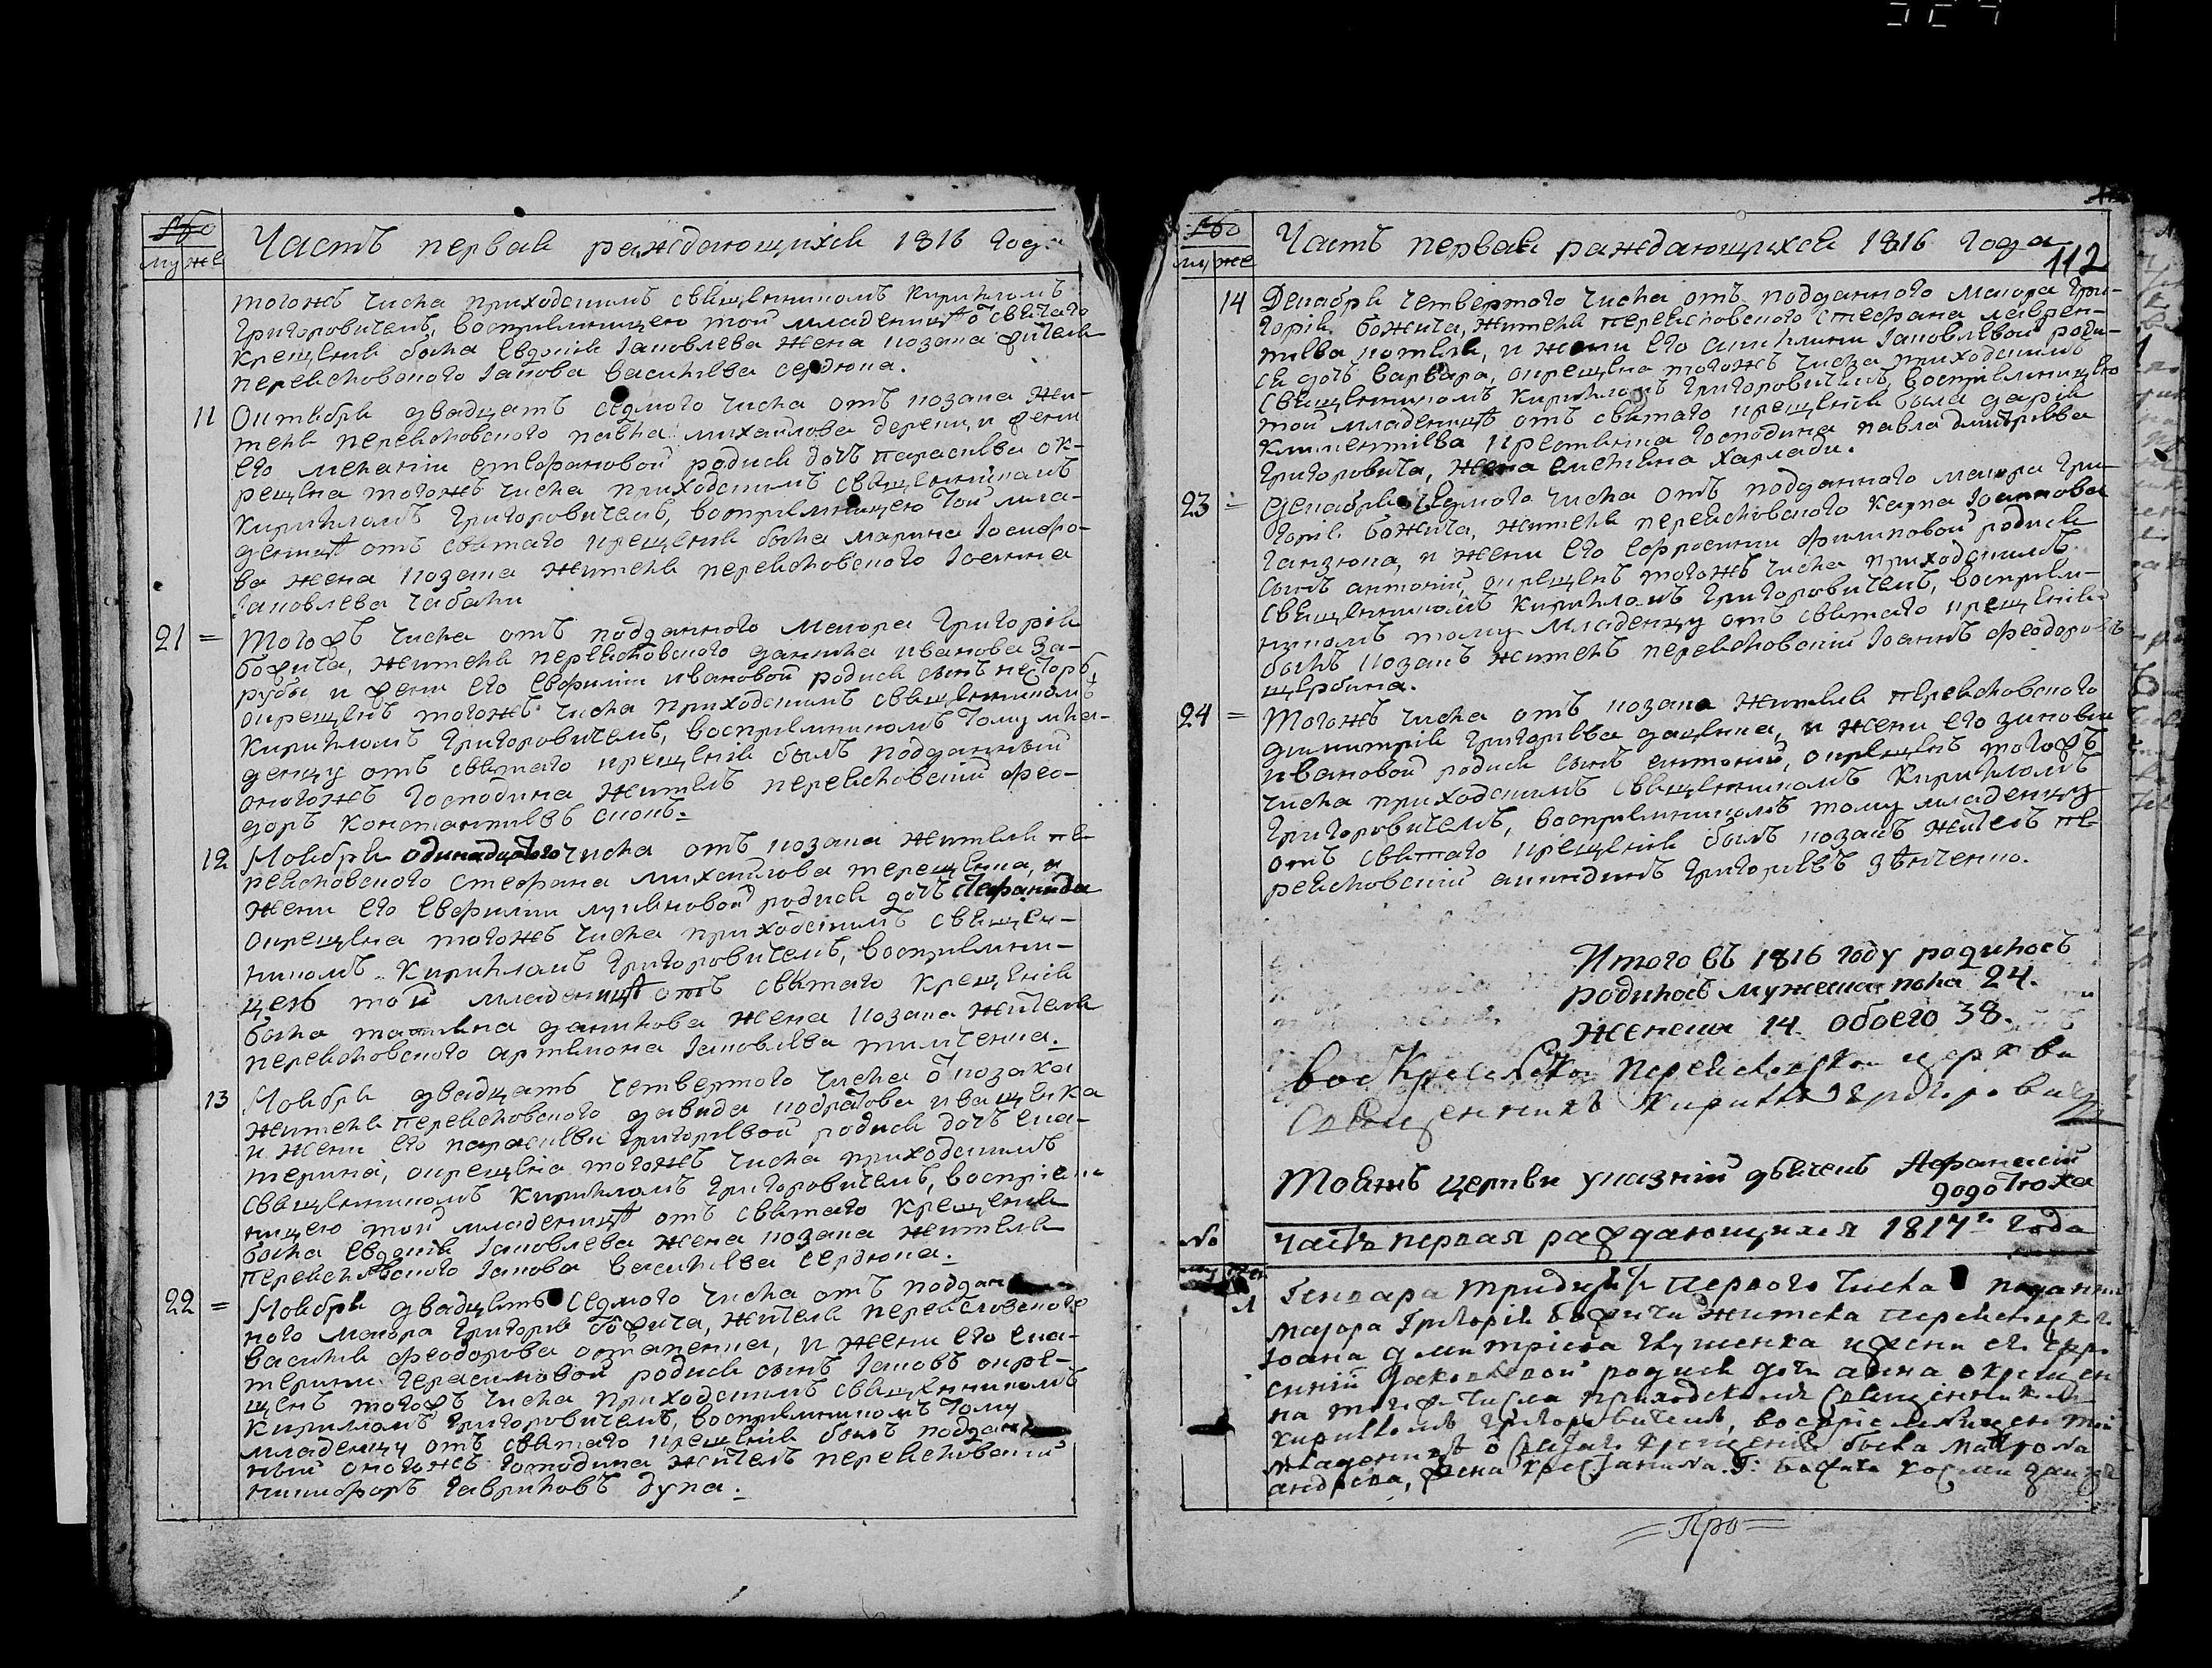 №
му же
Часть первая раждающихся 1816 года
тогожъ числа приходскимъ священникомъ Кирилломъ
Григоровичемъ, воспріемницею той младеницѣ ѿ святаго
крещенія была Евдокія Іаковлева жена козака жителя
переясловского Іакова Васильева сердюка.
11 Октября двадцать седмого числа отъ козака жи-
теля переясловского Павла Михайлова дереки, и жени
его меланіи стефановой родися дочъ параскева ок-
рещена тогожъ числа приходскимъ священникомъ
Кирилломъ Григоровичемъ, воспріемницею той мла-
деницѣ отъ святаго крещенія была марина Іосифо-
ва жена козака жителя переясловского Іоанна
Іаковлева чабана
21 = Тогожъ числа отъ подданного маіора Григорія
божича, жителя переясловского данила иванова За-
рубы и жени его Евфиміи ивановой родися сынъ несторъ,
окрещенъ тогожъ числа приходскимъ священникомъ
Кирилломъ Григоровичемъ, воспріемникомъ тому мла-
денцу отъ святаго крещенія былъ подданный
оногожъ господина житель переясловскій фео-
доръ константіевъ
12 Ноября одинадцятого числа отъ козака жителя пе-
реясловского стефана михайлова терещенка, и
жени его Евфиміи лукіановой родися дочъ Стефанида
окрещена тогожъ числа приходскимъ священ-
никомъ Кирилломъ Григоровичемъ, воспріемни-
цею той младеницѣ отъ святаго крещенія
была татіана данилова жена козака жителя
переясловского артемона Іаковлева тимченка.
13 Ноября двадцать четвертого числа ѿ козака
жителя переясловского давида кодратова иващенка
и жени его параскеви григоріевой родися дочъ ека-
терина, окрещена тогожъ числа приходскимъ
священникомъ Кирилломъ Григоровичемъ, воспріем-
ницею той младеницѣ отъ святаго крещенія
была Евдокія Іаковлева жена козака жителя
переясловского Іакова Васильева сердюка.
22 = Ноября двадцять седмого числа отъ поддан-
ного маіора Григорія божича, жителя переясловского
Василія феодорова остапенка, и жени его ека-
терини герасимовой родися сынъ Іаковъ окре-
щенъ тогожъ числа приходскимъ священникомъ
Кирилломъ Григоровичемъ, воспріемникомъ тому
младенцу отъ святаго крещенія былъ поддан-
ный оногожъ господина житель переясловскій
никифоръ гавриловъ
№
му же
Часть первая раждающихся 1816 года
112
14 Декабря четвертого числа отъ подданного маіора Гри-
горія божича, жителя переясловского стефана лаврен-
тіева и жени его акилини Іаковлевой роди-
ся дочъ варвара, окрещена тогожъ числа приходскимъ
священникомъ Кирилломъ Григоровичемъ, воспріемницею
той младеницѣ отъ святаго крещенія была дарія
климентіева крестянина господина павла дмитріева
Григоровича, жена харлади.
23 = Декабря седмого числа отъ подданного маіора Гри-
горія божича, жителя переясловского карпа Іоаннова
ганзюка, и жени его Ефросинии филиповой родися
сынъ антоній, окрещенъ тогожъ числа приходскимъ
священникомъ Кирилломъ Григоровичемъ, воспріем-
никомъ тому младенцу отъ святаго крещенія
былъ козакъ житель переясловскій Іоаннъ феодоровъ
щербина.
24 = Тогожъ числа отъ козака жителя переясловского
димитрія григоріева даценка, и жени его зиновіи
ивановой родися сынъ антоній, окрещенъ тогожъ
числа приходскимъ священникомъ Кирилломъ
Григоровичемъ, воспріемникомъ тому младенцу
отъ святаго крещенія былъ козакъ житель пе-
реясловскій акиндинъ григоріевъ зѣнченко.
Итого въ 1816 году родилось
родилось мужеска пола 24.
Женска 14. обоего 38.
Воскресенской Переясловской церкви
Священникъ Кириллъ Григоровичъ
Тояжъ церкви указній дьячекъ Афанасій
додотюха
№
Часть первая раждающихся 1817го года
му же
1 Генвара тридцять первого числа подданного
маіора Григорія божича жителя переясловского
Іоана дмитріева и жени его
Іаковлевой родися дочъ анна окреще
на тогожъ числа приходскимъ священникомъ
кирилломъ григоровичемъ, воспріемницею той
младеницѣ ѿ святаго крещенія была матрона
андреева, жена крестянина Г: божича космы
=Про=